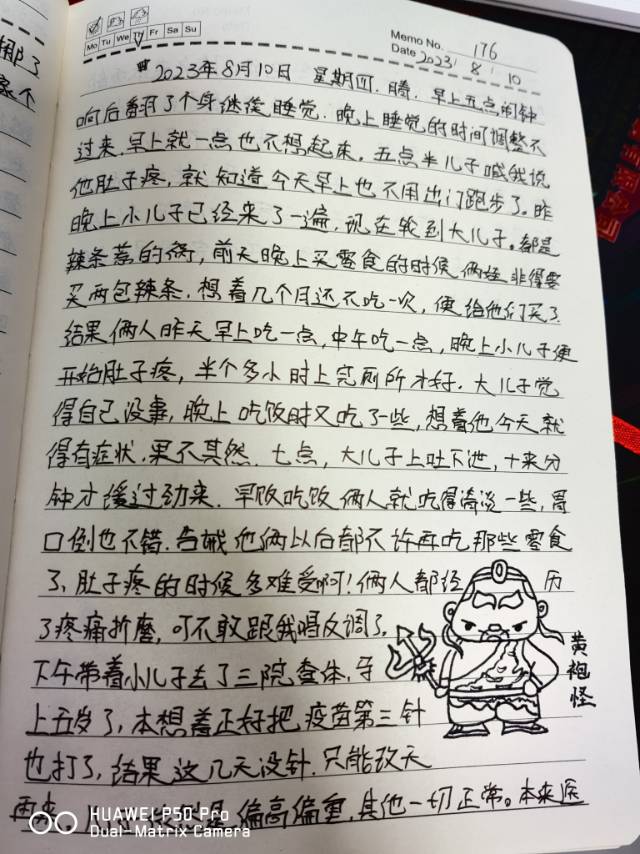 Memo No. 176
Mo Tu We Th Fr Sa Su
Date 2023 / 8 / 10
2023年8月10日 星期四.晴.早上五点,闹钟
响后翻了个身继续睡觉.晚上睡觉的时间调整不
过来,早上就一点也不想起来。五点半儿子喊我说
他肚子疼,就知道今天早上也不用出门跑步了。昨
晚上小儿子已经来了一遍,现在轮到大儿子。都是
辣条惹的祸,前天晚上买零食的时候俩娃非得要
买两包辣条.想着几个月还不吃一次,便给他们买了.
结果俩人昨天早上吃一点,中午吃一点,晚上小儿子便
开始肚子疼,半个多小时上完厕所才好.大儿子觉
得自己没事,晚上吃饭时又吃了一些,想着他今天就
得有症状.果不其然.七点,大儿子上吐下泄,十来分
钟才缓过劲来.早饭吃饭俩人就吃得清淡一些,胃
口倒也不错.告诫他俩以后都不许再吃那些零食
了,肚子疼的时候多难受啊!俩人都经历
了疼痛折磨,可不敢跟我唱反调了。
黄袍怪
下午带着小儿子去了三院查体.
上五岁了,本想着正好把疫苗第三针
也打了,结果这几天没针.只能改天
再来。偏高偏重,其他一切正常。本来医
HUAWEI P50 Pro
Dual-Matrix Camera